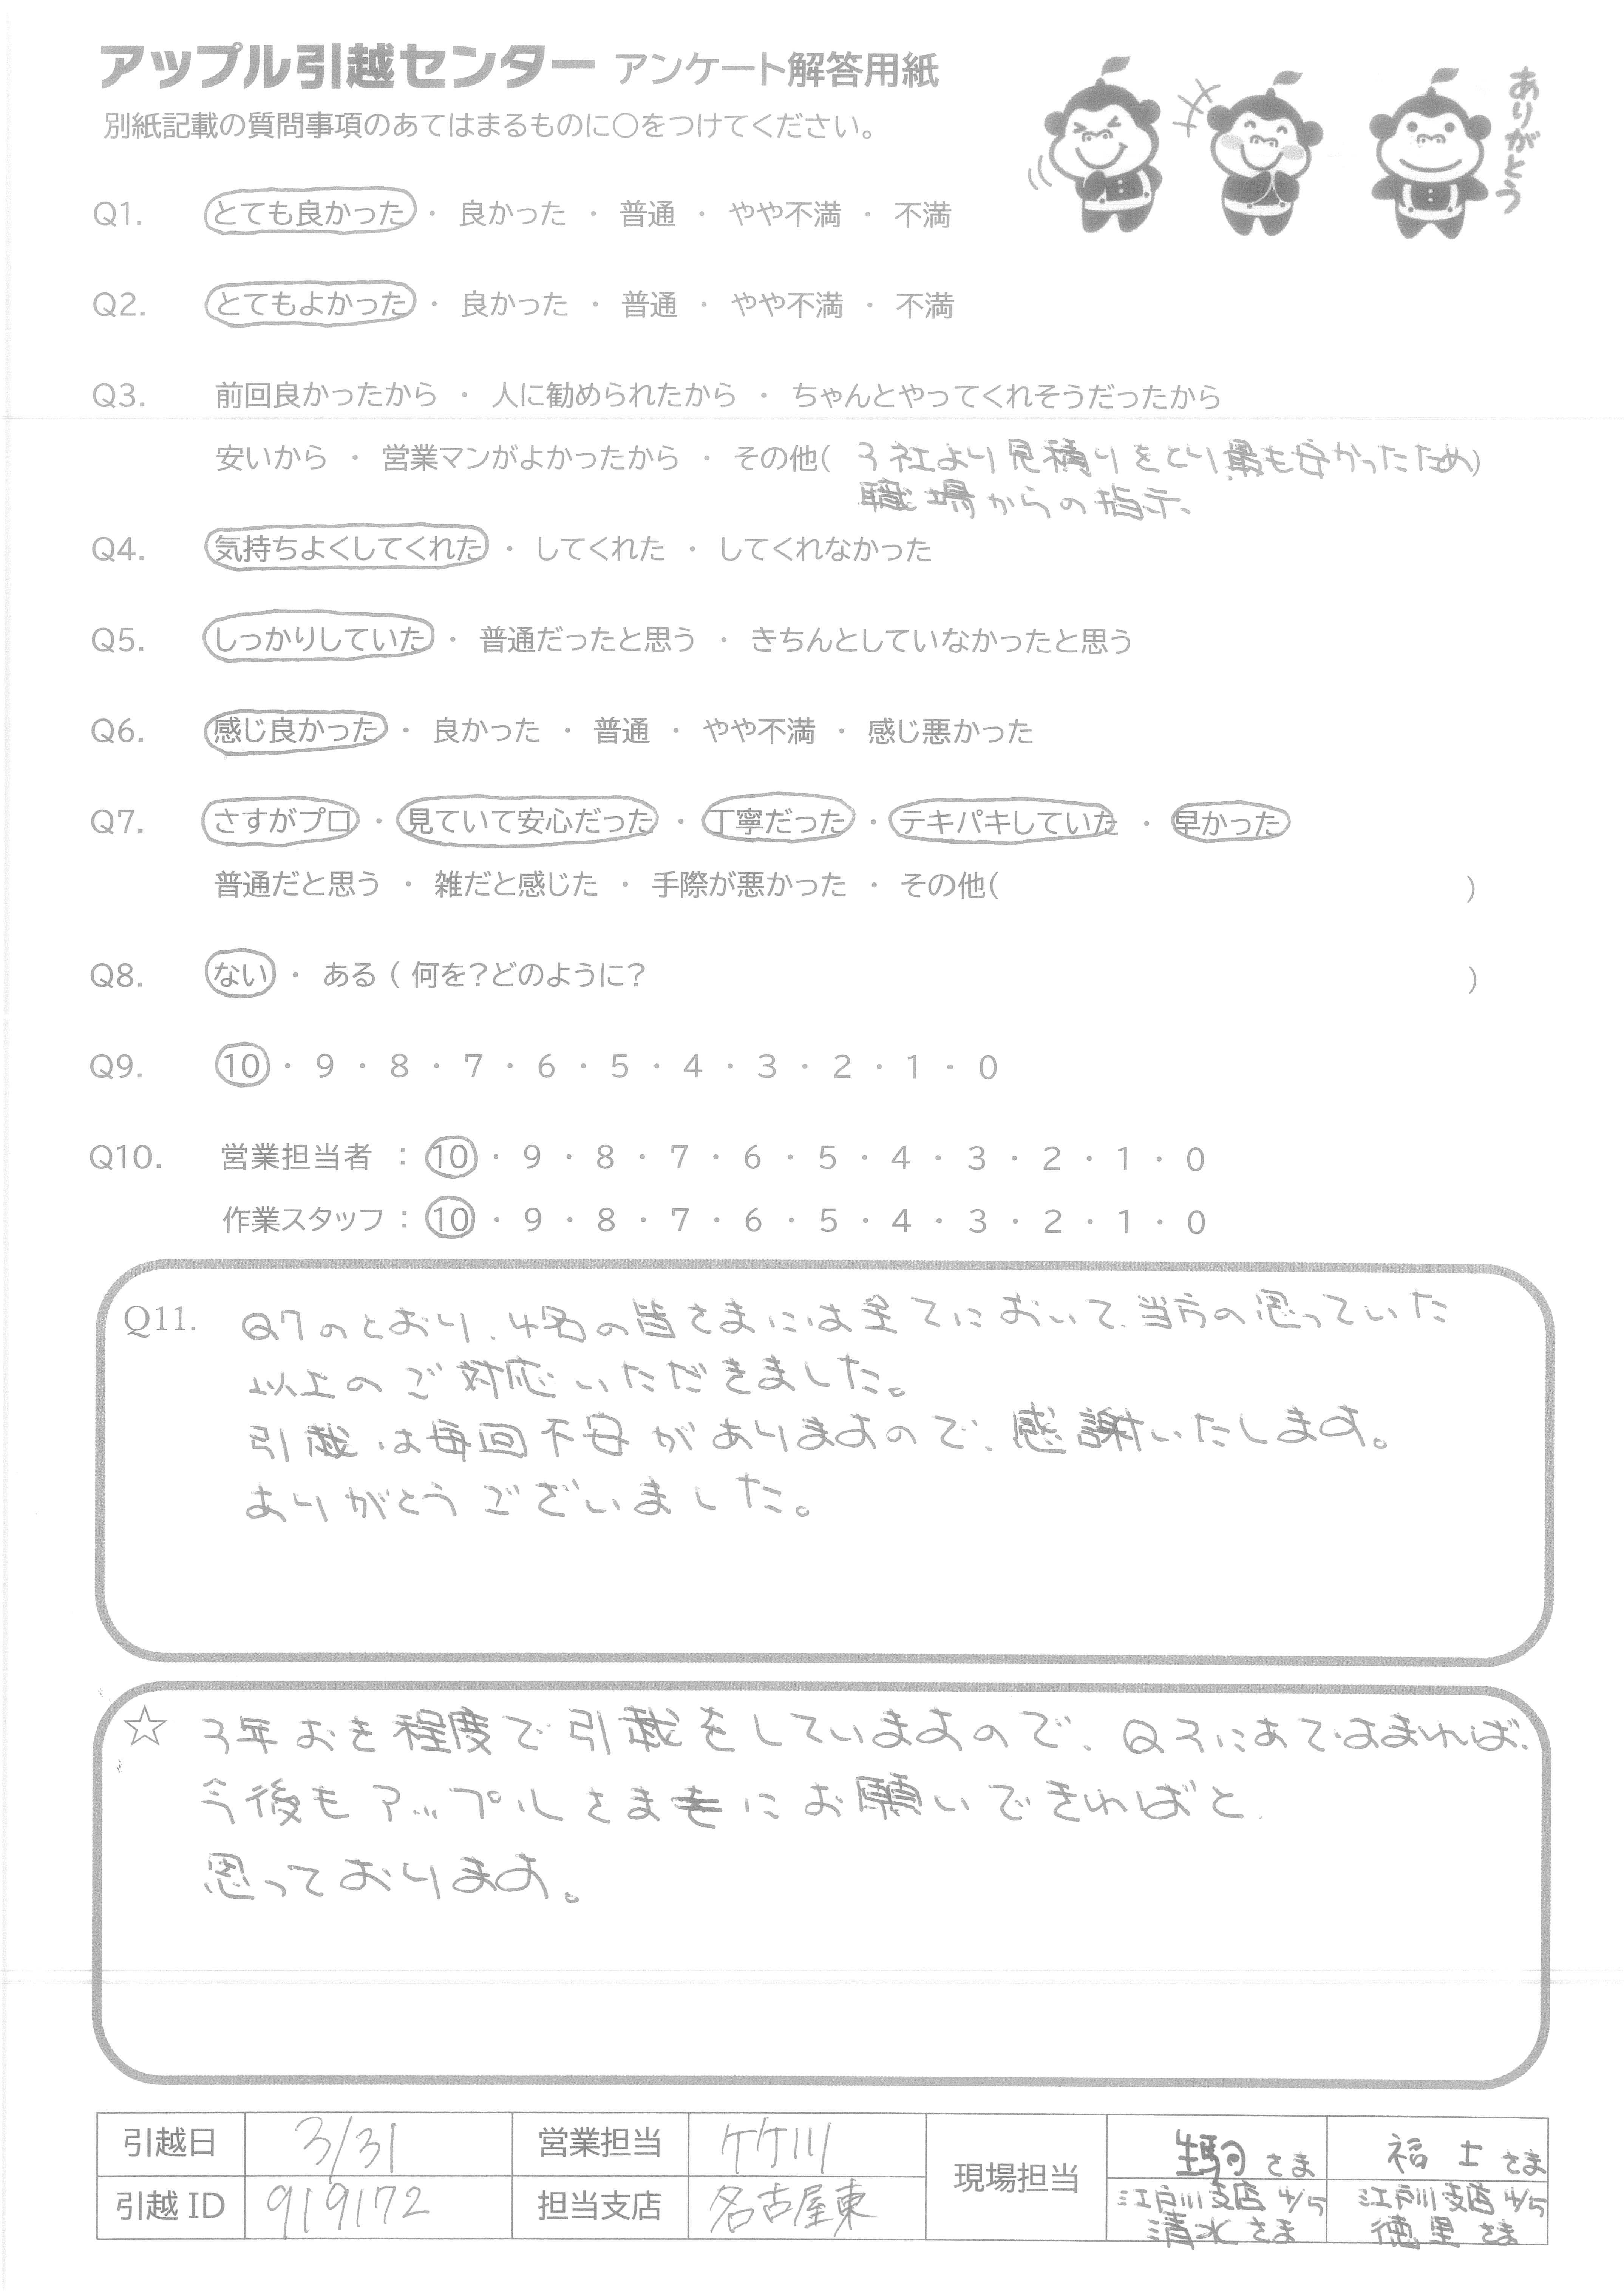 アップル引越センター アンケート解答用紙
別紙記載の質問事項のあてはまるものに○をつけてください。
ありがとう
Q1. とても良かった ・ 良かった ・ 普通 ・ やや不満 ・ 不満
Q2. とてもよかった ・ 良かった ・ 普通 ・ やや不満 ・ 不満
Q3. 前回良かったから ・ 人に勧められたから ・ ちゃんとやってくれそうだったから
安いから ・ 営業マンがよかったから ・ その他( 3社より見積りをとり、最も安かったため)
職場からの指示、
Q4. 気持ちよくしてくれた ・ してくれた ・ してくれなかった
Q5. しっかりしていた ・ 普通だったと思う ・ きちんとしていなかったと思う
Q6. 感じ良かった ・ 良かった ・ 普通 ・ やや不満 ・ 感じ悪かった
Q7. さすがプロ ・ 見ていて安心だった ・ 丁寧だった ・ テキパキしていた ・ 早かった
普通だと思う ・ 雑だと感じた ・ 手際が悪かった ・ その他( )
Q8. ない ・ ある ( 何を?どのように? )
Q9. 10 ・ 9 ・ 8 ・ 7 ・ 6 ・ 5 ・ 4 ・ 3 ・ 2 ・ 1 ・ 0
Q10. 営業担当者 : 10 ・ 9 ・ 8 ・ 7 ・ 6 ・ 5 ・ 4 ・ 3 ・ 2 ・ 1 ・ 0
作業スタッフ : 10 ・ 9 ・ 8 ・ 7 ・ 6 ・ 5 ・ 4 ・ 3 ・ 2 ・ 1 ・ 0
Q11. Q7のとおり、4名の皆さまには全てにおいて、当方の思っていた
以上のご対応いただきました。
引越は毎回不安がありますので、感謝いたします。
ありがとうございました。
☆ 3年おき程度で引越をしていますので、Q3にあてはまれば、
今後もアップルさまにお願いできればと
思っております。
引越日 3/31 営業担当 竹川 現場担当 生駒さま 福士さま
引越 ID 919172 担当支店 名古屋東 江戸川支店 4/5 江戸川支店 4/5
清水さま 徳里さま